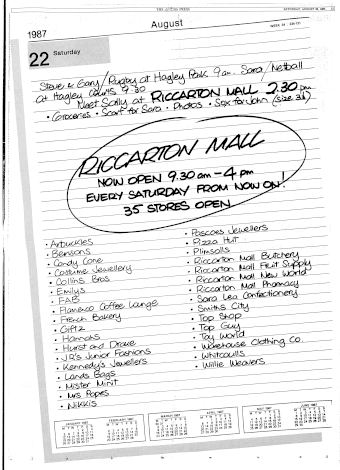 THE PRESS
SATURDAY, AUGUST 22, 1987
August
1987
22 Saturday
Steve & Gary / Rugby at Hagley Park 9 am. Sara / Netball
at Hagley Courts 9.30
Meet Sally at RICCARTON MALL 2.30 pm
• Groceries • Scarf for Sara • Photos • Sox for John (size 38)
RICCARTON MALL
NOW OPEN 9.30 am - 4 pm
EVERY SATURDAY FROM NOW ON!
35 STORES OPEN
• Arbuckles
• Bensons
• Candy Cone
• Costume Jewellery
• Collins Bros
• Emilys
• FAB
• Flamenco Coffee Lounge
• French Bakery
• Giftz
• Hannahs
• Hurst and Drake
• JR's Junior Fashions
• Kennedy's Jewellers
• Lands Bags
• Mister Minit
• Mrs Popes
• Nikkis
• Pascoes Jewellers
• Pizza Hut
• Plimsolls
• Riccarton Mall Butchery
• Riccarton Mall Fruit Supply
• Riccarton Mall New World
• Riccarton Mall Pharmacy
• Sara Lea Confectionery
• Smiths City
• Top Shop
• Top Guy
• Toy World
• Warehouse Clothing Co
• Whitcoulls
• Willie Weavers
JANUARY 1987
FEBRUARY 1987
MARCH 1987
APRIL 1987
MAY 1987
JUNE 1987